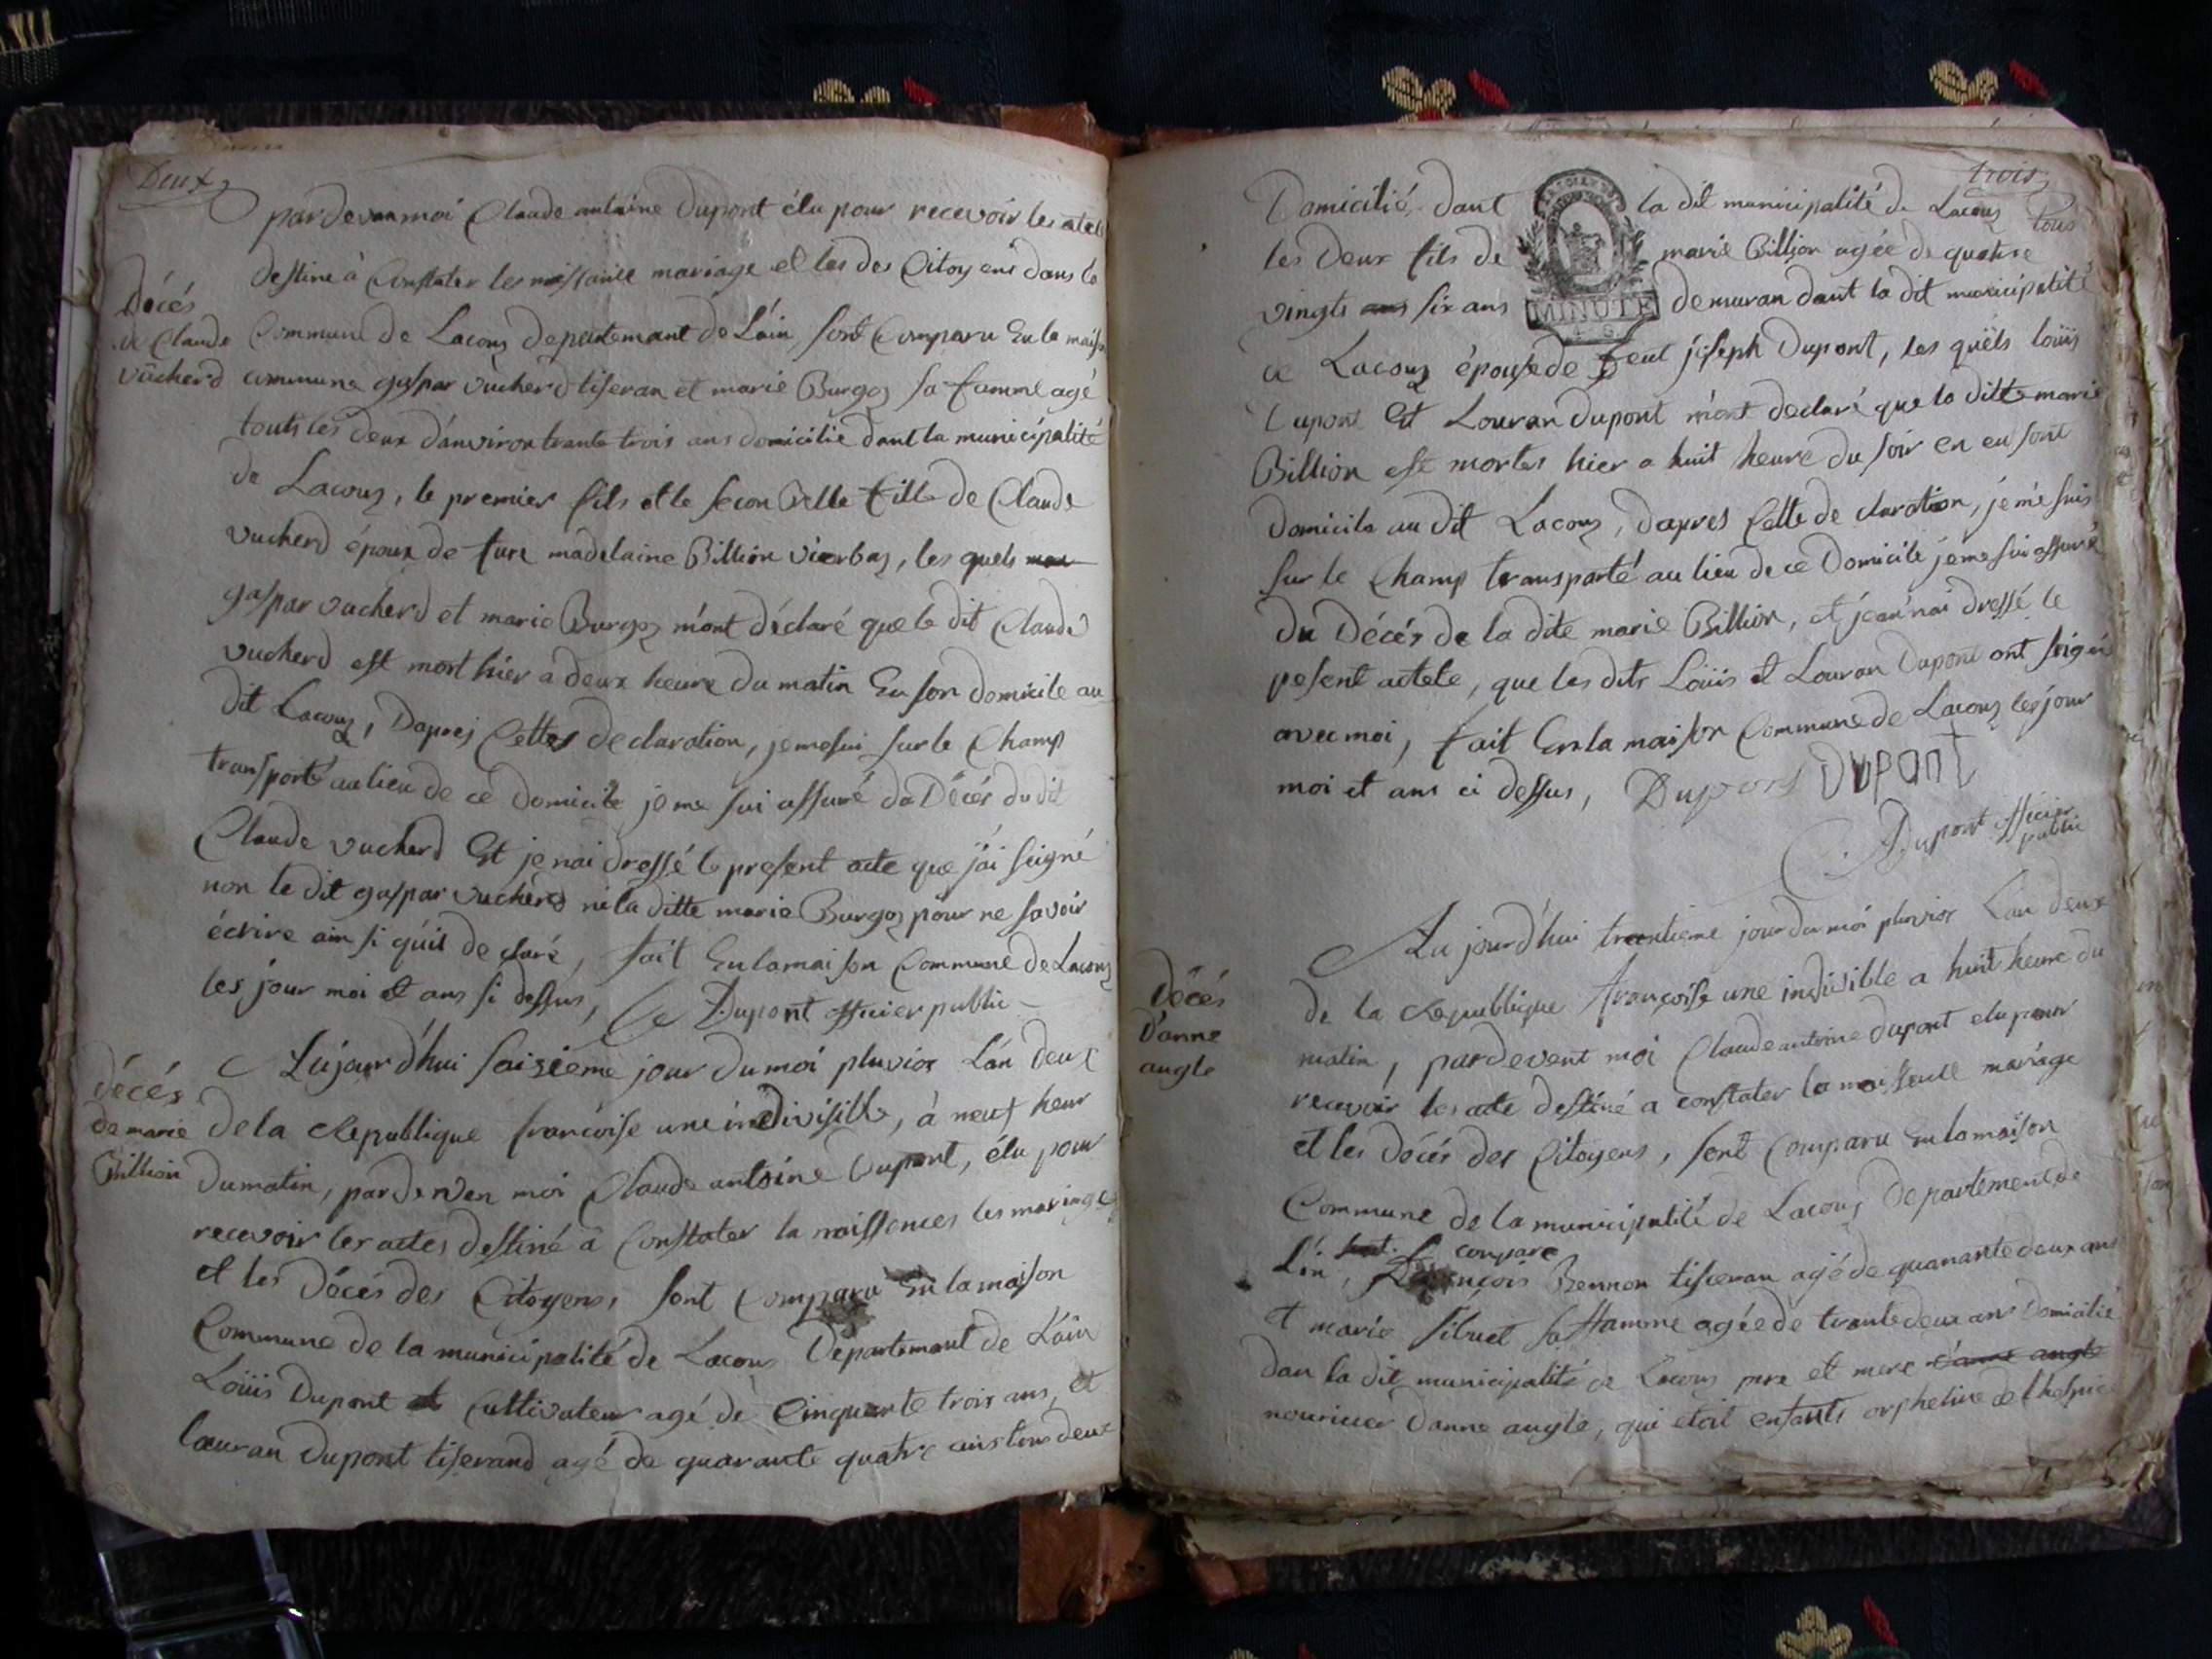 Deux
par devan moi Claude antoine Dupont élu pour recevoir les actes
destiné à Constater les naissance mariage et les des Citoyens dans la
Décés
de Claude
vucherd
Commune de Lacoux departemant de L'ain sont Comparu En la maison
commune gaspar vucherd tiseran et marie Burgoz sa famme agé
touts les deux d'anviron trante trois ans domicilié dant la municipalité
de Lacoux, le premier fils et le secon belle fille de Claude
vucherd époux de fure madelaine Billion vierbaz, les quels
gaspar vucherd et marie Burgoz m'ont déclaré que le dit Claude
vucherd est mort hier a deux heure du matin En son domicile au
dit Lacoux, Dapres Cettes declaration, je me sui sur le Champ
transporté au lieu de ce domicile je me sui assuré du Décés du dit
Claude vucherd Et je nai dressé le present acte que j'ai seigné
non le dit gaspar vucherd ni la ditte marie Burgoz pour ne savoir
écrire ain si qu'il de claré, fait En la mai son Commune de Lacoux
les jour moi et ans si dessus, Dupont officier public
décés
de marie
Billion
Aujourd'hui saisieme jour du moi pluviox L'an deux
de la Republique francoise une indivisible, à neuf heur
du matin, par de ven moi Claude antoine Dupont, élu pour
recevoir les actes destiné à Constater la naissences les mariage
et les Décés des Citoyens, sont Comparu En la maison
Commune de la municipalité de Lacoux Departemant de L'ain
Loüis Dupont Cultivateur agé de Cinquante trois ans, et
Louran Dupont tiserand agé de quarante quatre ans tous deux
trois
Domicilié dant la dit municipalité de Lacoux tous
les deux fils de marie Billion agée de quatre
vingts six ans demuran dant la dit municipalité
MINUTE
de Lacoux épouse de feut joseph Dupont, les quëls loüis
Dupont Et Louran Dupont m'ont declaré que la ditte marie
Billion est mortes hier a huit heure du soir en eu sont
domicile au dit Lacoux, dapres Cette de claration, je me suis
sur le Champ transporté au lieu de ce Domicile je me sui assuré
du Décés de la dite marie Billion, et jean nai dressé le
pesent actete, que les dits Loüis et Louran Dupont ont seigné
avec moi, fait En la maison Commune de Lacoux les jour
moi et ans ci dessus, Dupont DUPONT
Dupont officier
public
Décés
d'anne
angle
Au jourd'hui trantieme jour du moi pluviox Lan deux
de la Republique françoise une indivisible a huit heure du
matin, pardevent moi Claude antoine dupont elu pour
recevoir les acte destiné a constater la naissance mariage
et les décés des Citoyens, sont Comparu En la maison
Commune de la municipalité de Lacoux Departement de
L'in, compare
François Bennon tisceran agé de quanante deux ans
et marie sa ffamme agée de trante deux ans Domicilié
dan la dit municipalité de Lacoux pere et mere
nouricier d'anne angle, qui etoit enfants orpheline de l'hospice